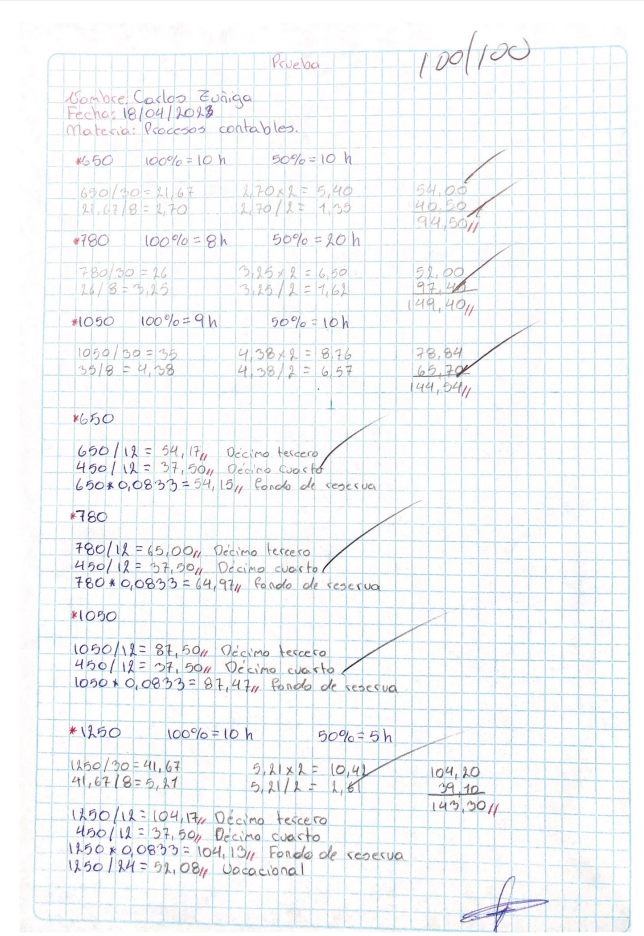 Prueba
100/100
Nombre: Carlos Zuñiga
Fecha: 18/04/2023
Materia: Procesos contables.
*650 100% = 10 h 50% = 10 h
650/30 = 21,67 2,70 x 2 = 5,40 54,00
21,67/8 = 2,70 2,70/2 = 1,35 40,50
94,50//
*780 100% = 8h 50% = 20h
780/30 = 26 3,25 x 2 = 6,50 52,00
26/8 = 3,25 3,25/2 = 1,62 97,40
149,40//
*1050 100% = 9h 50% = 10h
1050/30 = 35 4,38 x 2 = 8.76 78,84
35/8 = 4,38 4,38/2 = 6,57 65,70
144,54//
*650
650/12 = 54,17// Décimo tercero
450/12 = 37,50// Décimo cuarto
650*0,0833 = 54,15// Fondo de reserva
*780
780/12 = 65,00// Décimo tercero
450/12 = 37,50// Décimo cuarto
780*0,0833 = 64,97// Fondo de reserva
*1050
1050/12 = 87,50// Décimo tercero
450/12 = 37,50// Décimo cuarto
1050*0,0833 = 87,47// Fondo de reserva
*1250 100% = 10 h 50% = 5h
1250/30 = 41,67 5,21 x 2 = 10,42 104,20
41,67/8 = 5,21 5,21/2 = 2,61 39,10
143,30//
1250/12 = 104,17// Décimo tercero
450/12 = 37,50// Décimo cuarto
1250*0,0833 = 104,13// Fondo de reserva
1250/24 = 52,08// Vacacional